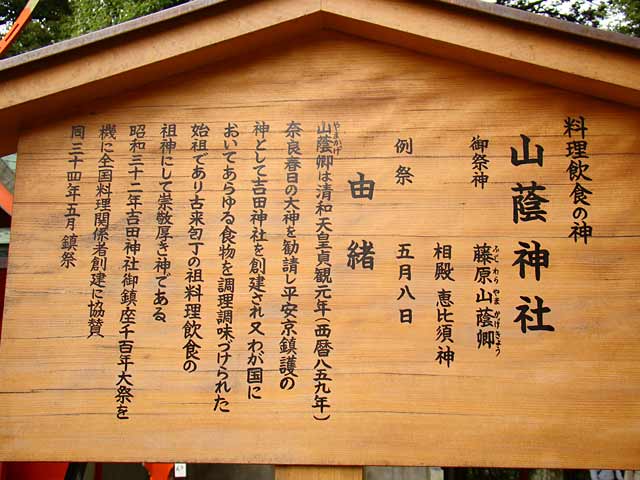 料理飲食の神
山蔭神社
御祭神 藤原山蔭卿
ふじわらやまかげきょう
相殿 恵比須神
例祭 五月八日
由緒
やまかげ
山蔭卿は清和天皇貞観元年(西暦八五九年)
奈良春日の大神を勧請し平安京鎮護の
神として吉田神社を創建され又わが国に
おいてあらゆる食物を調理調味づけられた
始祖であり古来包丁の祖料理飲食の
祖神にして崇敬厚き神である
昭和三十二年吉田神社御鎮座千百年大祭を
機に全国料理関係者創建に協賛
同三十四年五月鎮祭